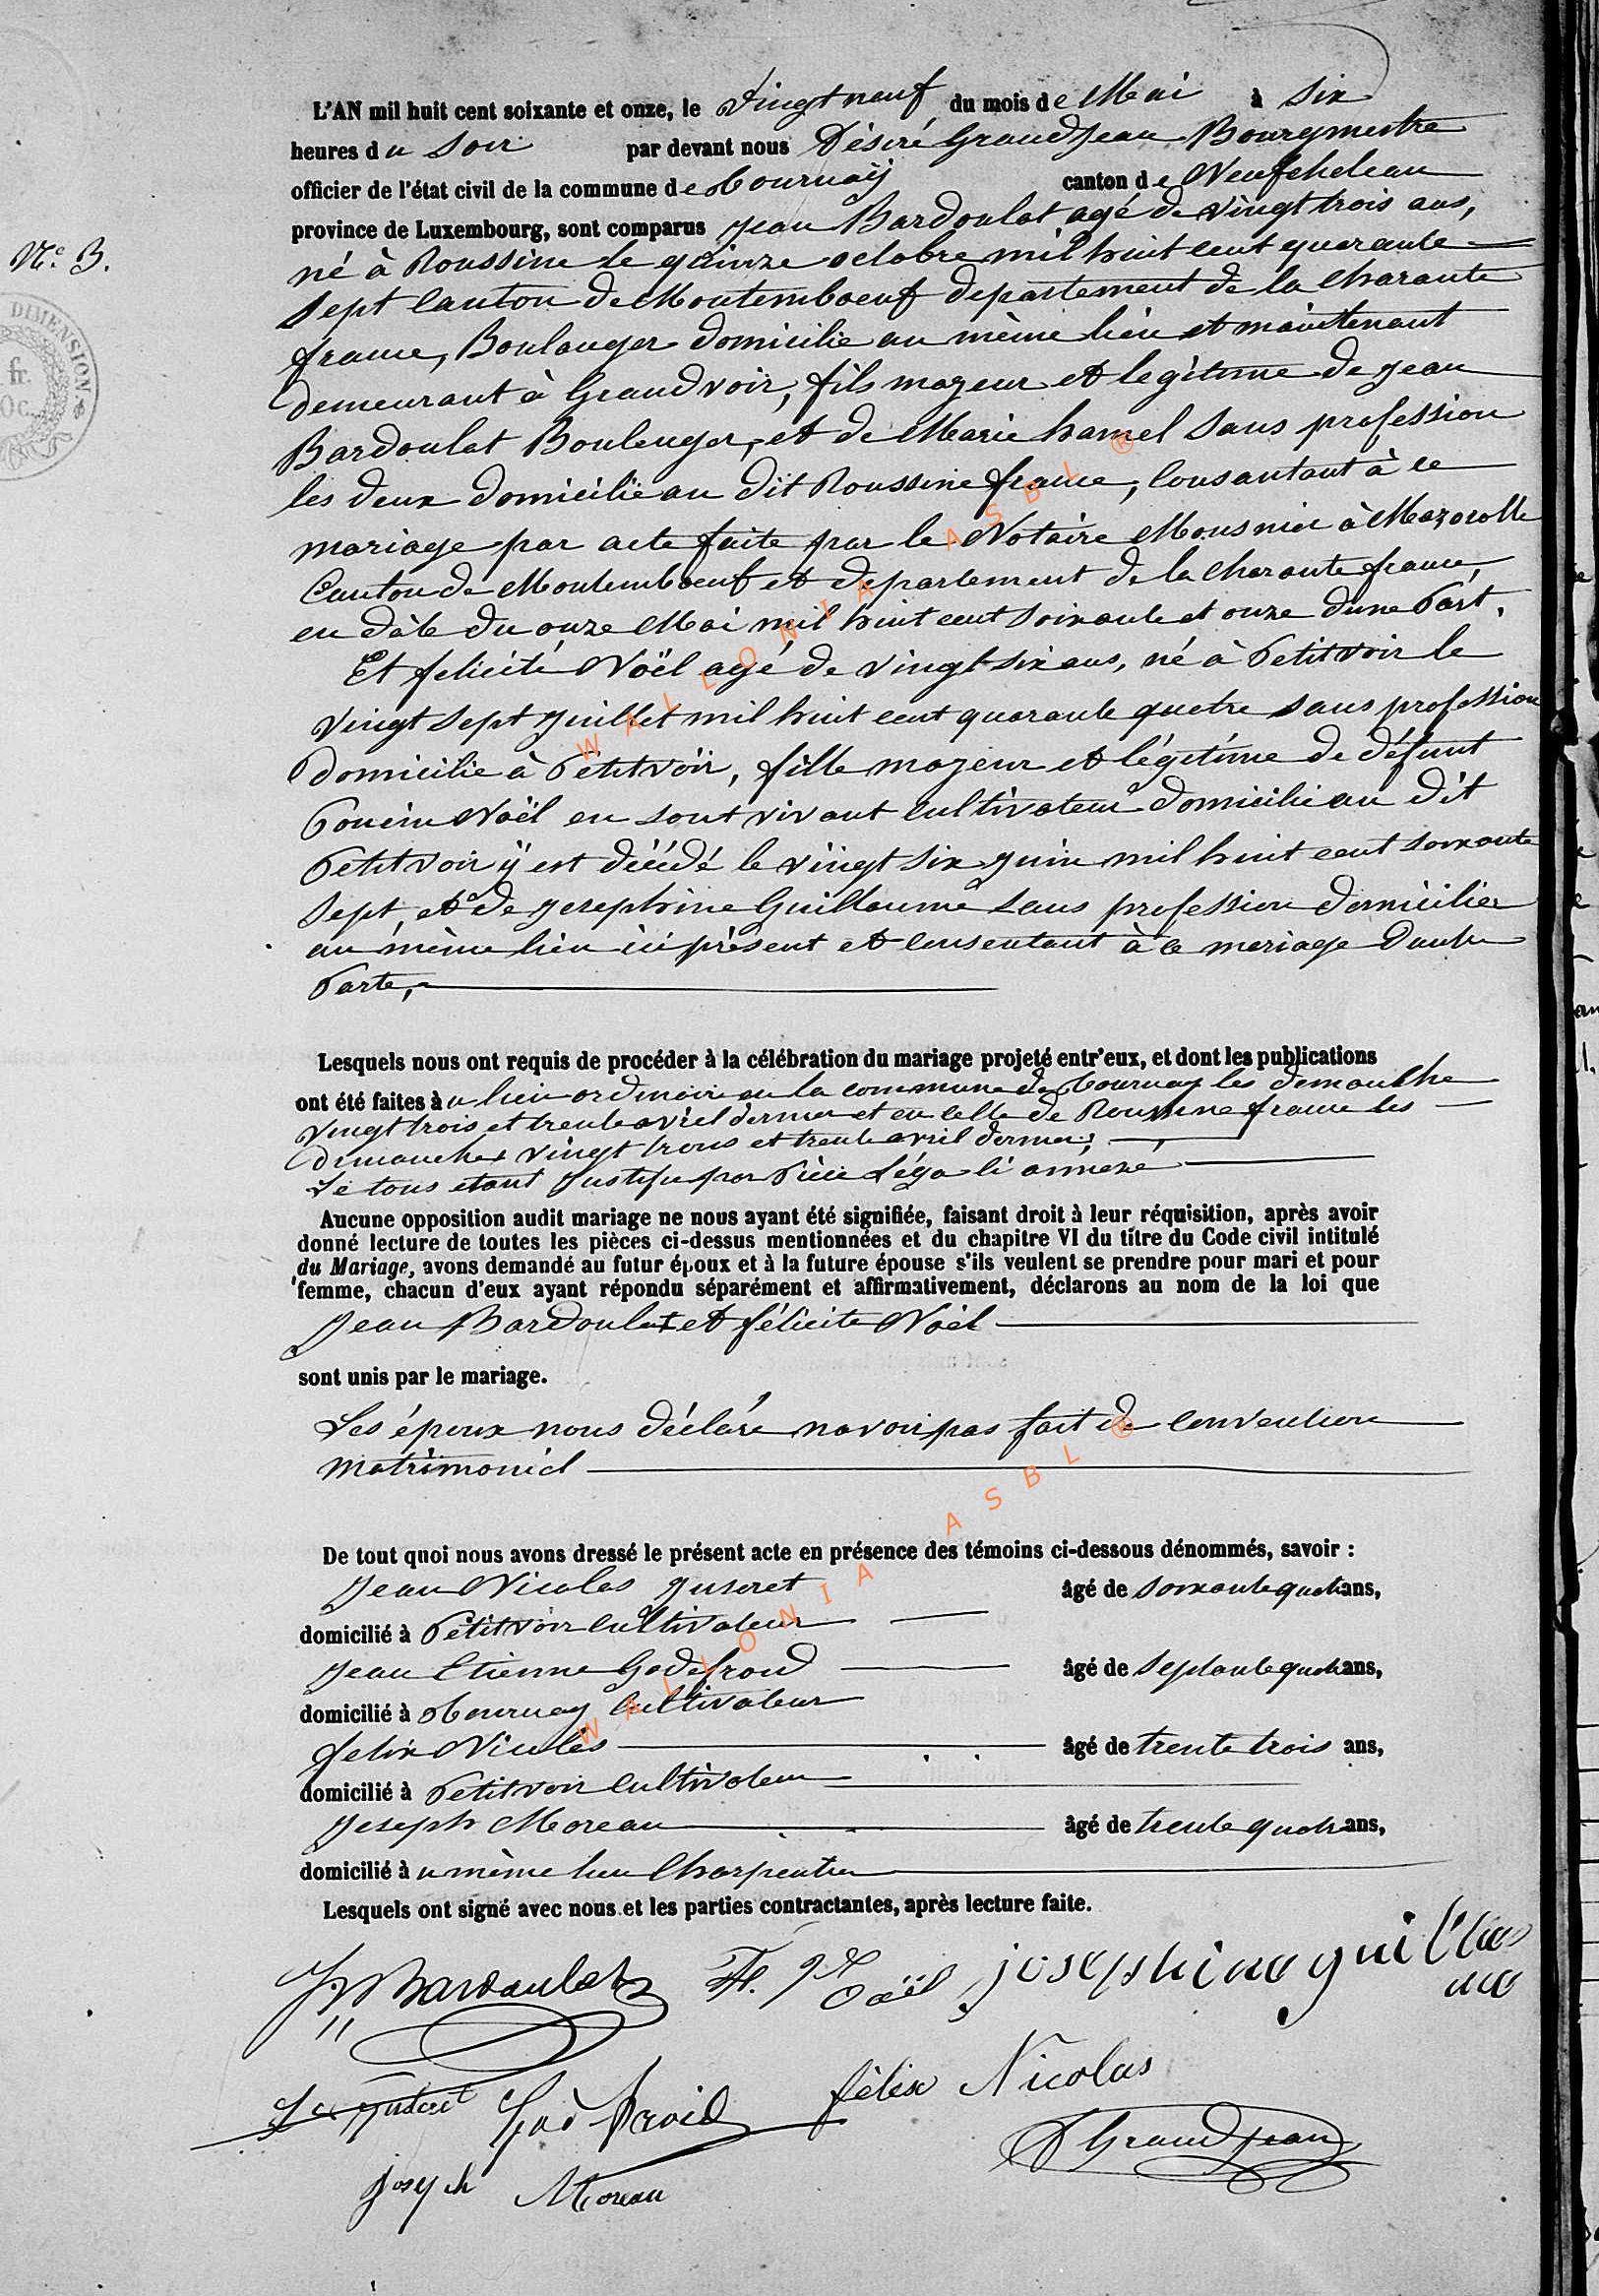 L'AN mil huit cent soixante et onze, le vingt neuf du mois de Mai à six
heures du soir par devant nous Désiré Grandjean Bourgmestre
officier de l'état civil de la commune de Tournaÿ canton de Neufcheleau
province de Luxembourg, sont comparus Jean Bardoulat agé de vingt trois ans,
N° 3.
né à Roussine le quinze octobre mil huit cent quarante
DIMENSION
sept Canton de Montemboeuf departement de la charante
france, Boulanger domicilie au même lieu et maintenant
fr.
demeurant à Grandvoir, fils mageur et legitime de Jean
Bardoulat Boulenger, et de Marie hamel sans profession
les deux domicilié au dit Roussine france, consantant à ce
mariage par acte faite par le Notaire Mousnier à Mazerolle
Canton de Montemboeuf et departement de la Charante france,
en date du onze Mai mil huit cent soixante et onze dune Part,
Et felicité Noël agé de vingt six ans, né à Petitvoir le
vingt sept Juillet mil huit cent quarante quatre sans profession
domicilie à Petitvoir, fille mageur et légitime de défunt
Noël en sont vivant cultivateur domicilié au dit
Petitvoir ÿ est décédé le vingt six Juin mil huit cent soixante
sept, et de Josephine Guillaume sans profession domicilier
au même lieu ici présent et consentant à ce mariage dautre
Parte,
Lesquels nous ont requis de procéder à la célébration du mariage projeté entr'eux, et dont les publications
ont été faites au lieu ordinaire en la commune de Tournay les demanche
vingt trois et trente avril dernier et en celle de Roussine france les
dimanche vingt trois et trente avril dernier,
Le tous etant Justifié par Pièce Légali annexé
Aucune opposition audit mariage ne nous ayant été signifiée, faisant droit à leur réquisition, après avoir
donné lecture de toutes les pièces ci-dessus mentionnées et du chapitre VI du titre du Code civil intitulé
du Mariage, avons demandé au futur époux et à la future épouse s'ils veulent se prendre pour mari et pour
femme, chacun d'eux ayant répondu séparément et affirmativement, déclarons au nom de la loi que
Jean Bardoulat et félicite Noël
sont unis par le mariage.
Les époux nous déclaré navoir pas fait de convention
matrimoniel
De tout quoi nous avons dressé le présent acte en présence des témoins ci-dessous dénommés, savoir :
Jean Nicolas Juseret âgé de soixante quatre ans,
domicilié à Petitvoir cultivateur
Jean Etienne Godefroid âgé de septante quatre ans,
domicilié à Tournay Cultivateur
felix Nicolas âgé de trente trois ans,
domicilié à Petitvoir Cultivateur
Joseph Moreau âgé de trente quatre ans,
domicilié au même lieu Charpentier
Lesquels ont signé avec nous et les parties contractantes, après lecture faite.
Bardoulat Noël josephine guillau
me
Juseret God froid félix Nicolas
D Grandjean
Joseph Moreau
WALLONIA ASBL ®
WALLONIA ASBL ®